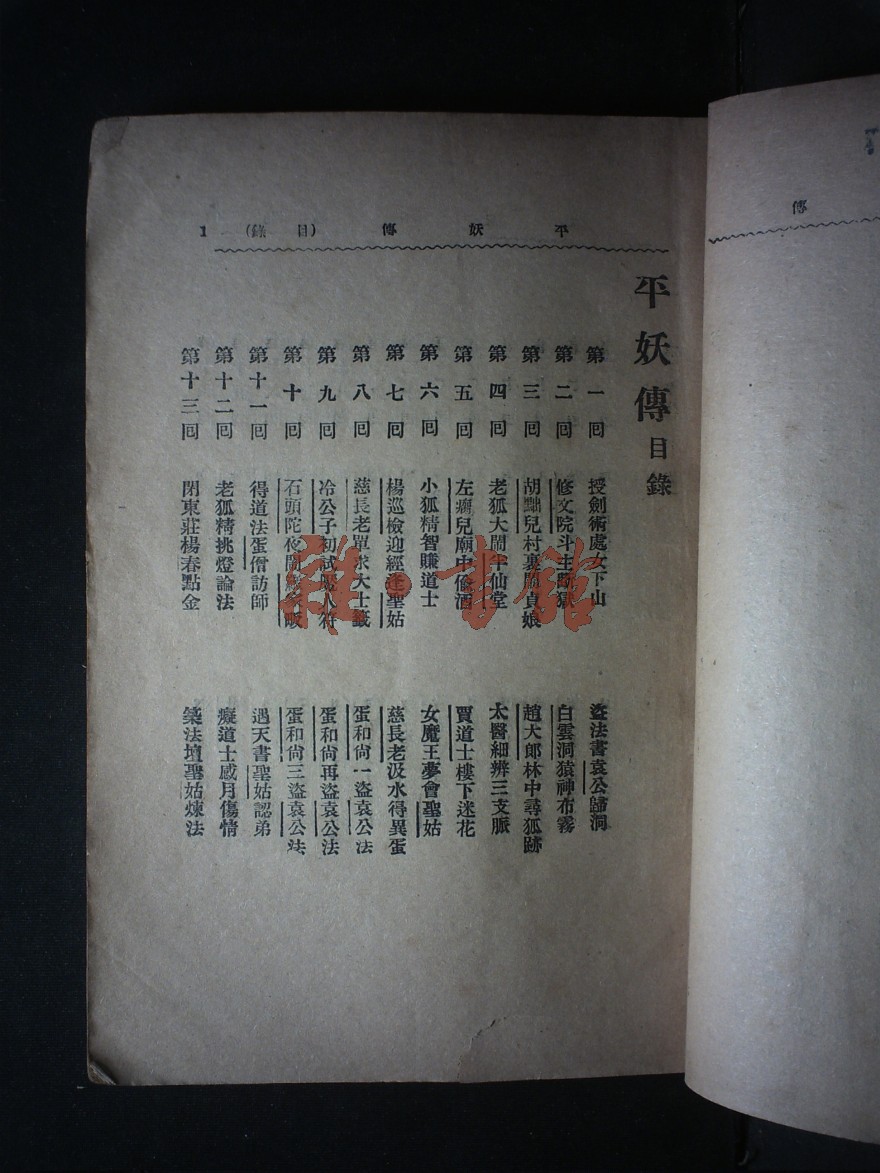 平妖傳 (目錄) 1
平妖傳目錄
第一回 授劍術處女下山 盜法書袁公歸洞
第二回 修文院斗主斷獄 白雲洞猿神布霧
第三回 胡黜兒村裏鬧貞娘 趙大郎林中尋狐跡
第四回 老狐大鬧半仙堂 太醫細辨三支脈
第五回 左瘸兒廟中偷酒 賈道士樓下迷花
第六回 小狐精智賺道士 女魔王夢會聖姑
第七回 楊巡檢迎經逢聖姑 慈長老汲水得異蛋
第八回 慈長老單求大士籤 蛋和尙一盜袁公法
第九回 冷公子初試魘人符 蛋和尙再盜袁公法
第十回 石頭陀夜鬧畈 蛋和尙三盜袁公法
第十一回 得道法蛋僧訪師 遇天書聖姑認弟
第十二回 老狐精挑燈論法 癡道士感月傷情
第十三回 閉東莊楊春點金 築法壇聖姑煉法
傳
雜·書館